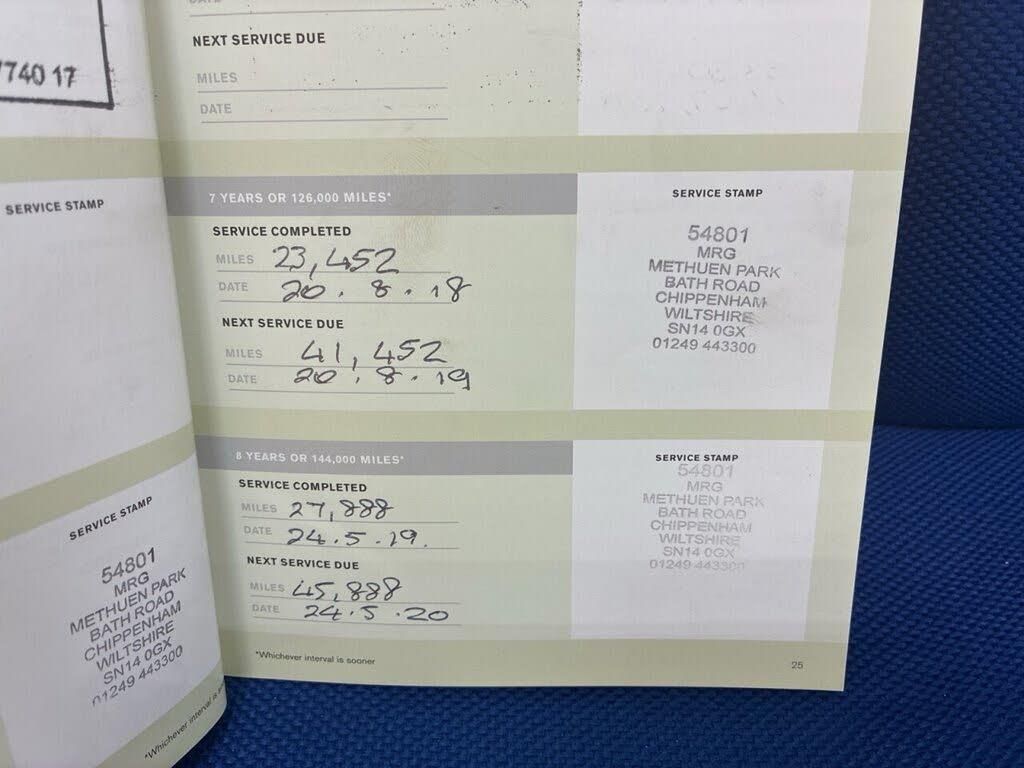 7740 17
SERVICE STAMP
SERVICE STAMP
54801
MRG
METHUEN PARK
BATH ROAD
CHIPPENHAM
WILTSHIRE
SN14 0GX
01249 443300
*Whichever interval is
DATE
NEXT SERVICE DUE
MILES
DATE
7 YEARS OR 126,000 MILES*
SERVICE COMPLETED
MILES 23,452
DATE 20.8.18
NEXT SERVICE DUE
MILES 41,452
DATE 20.8.19
SERVICE STAMP
54801
MRG
METHUEN PARK
BATH ROAD
CHIPPENHAM
WILTSHIRE
SN14 0GX
01249 443300
8 YEARS OR 144,000 MILES*
SERVICE COMPLETED
MILES 27,888
DATE 24.5.19.
NEXT SERVICE DUE
MILES 45,888
DATE 24.5.20
SERVICE STAMP
54801
MRG
METHUEN PARK
BATH ROAD
CHIPPENHAM
WILTSHIRE
SN14 0GX
01249 443300
*Whichever interval is sooner
25